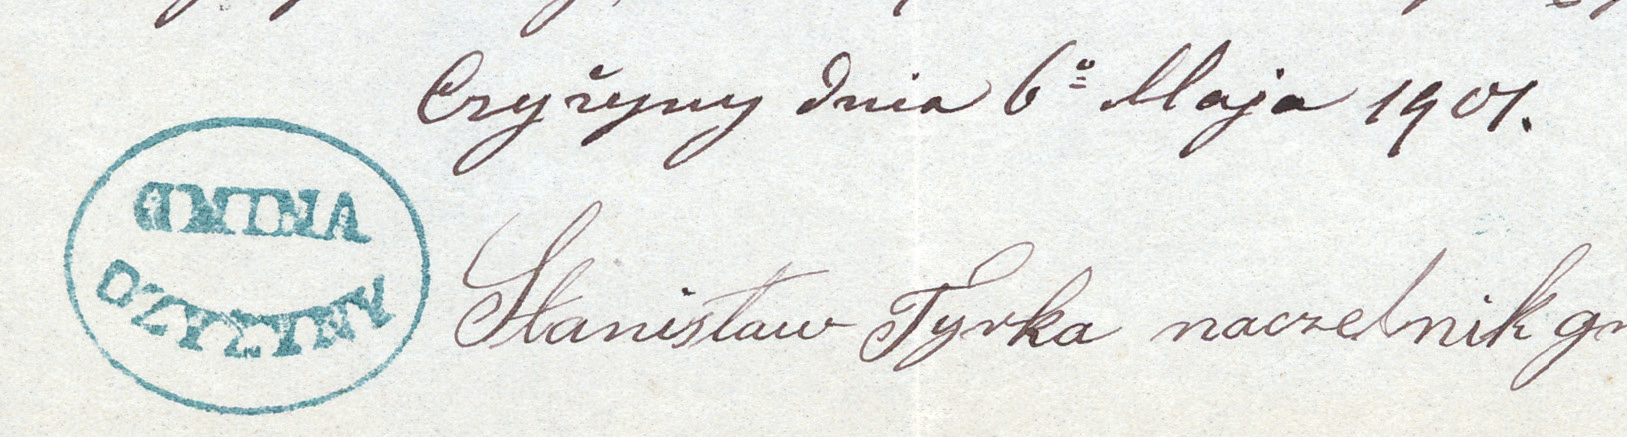 Czyżyny dnia 6º Maja 1901.
GMINA
CZYŻYNY
Stanisław Tyrka naczelnik